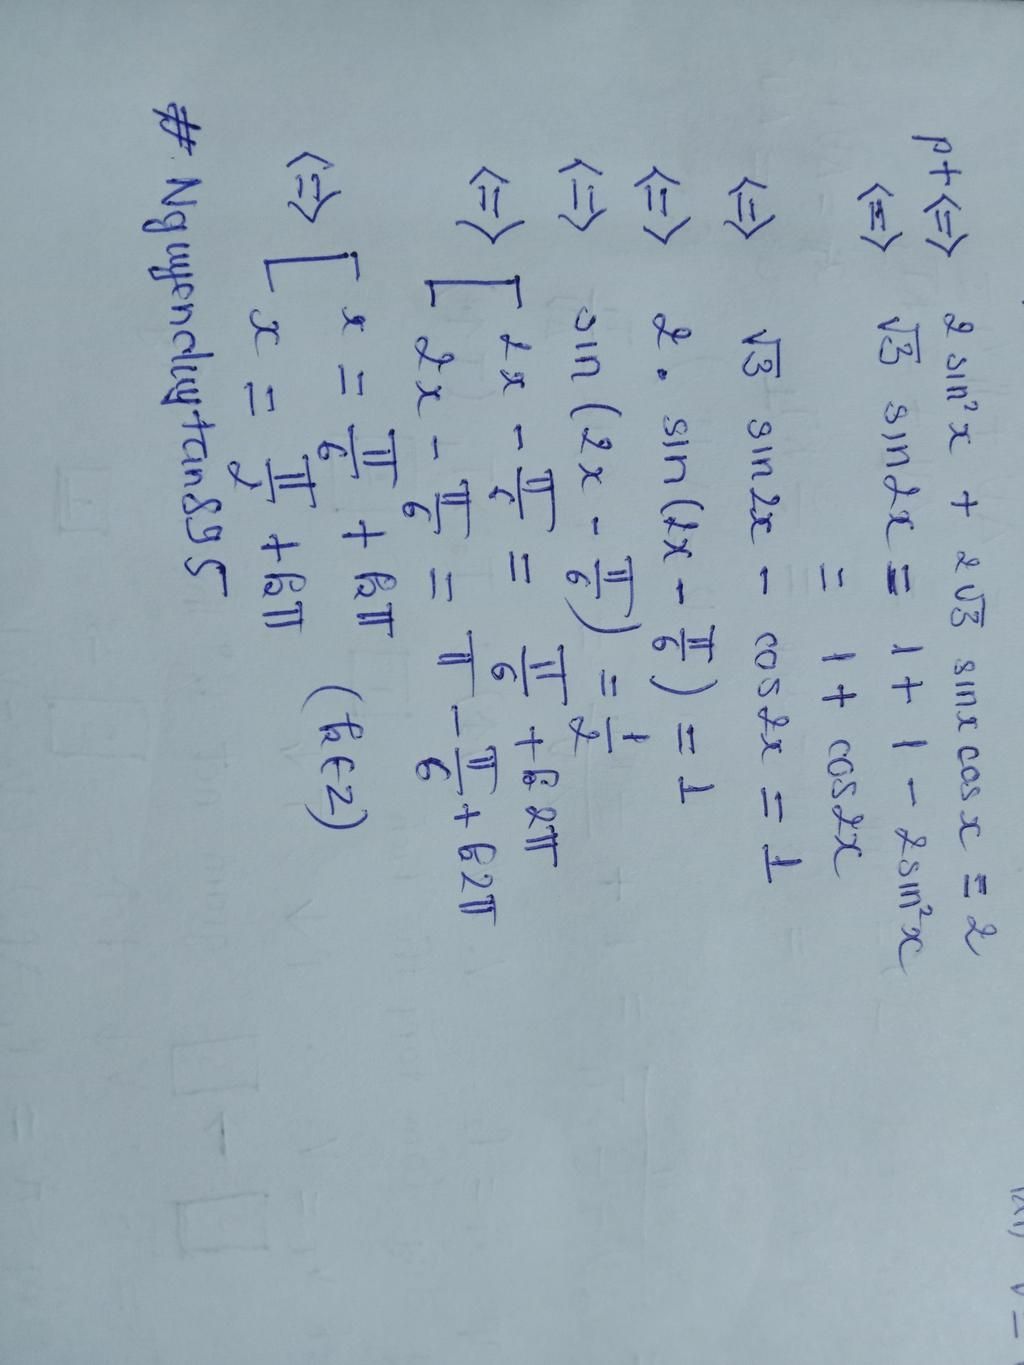 pt <=> 2 sin²x + 2√3 sinx cosx = 2
<=> √3 sin2x = 1 + 1 - 2sin²x
= 1 + cos2x
<=> √3 sin2x - cos2x = 1
<=> 2 . sin(2x - π/6) = 1
<=> sin(2x - π/6) = 1/2
<=> [ 2x - π/6 = π/6 + k2π
2x - π/6 = π - π/6 + k2π
<=> [ x = π/6 + kπ
(k∈Z)
x = π/2 + kπ
# Nguyenduytan895